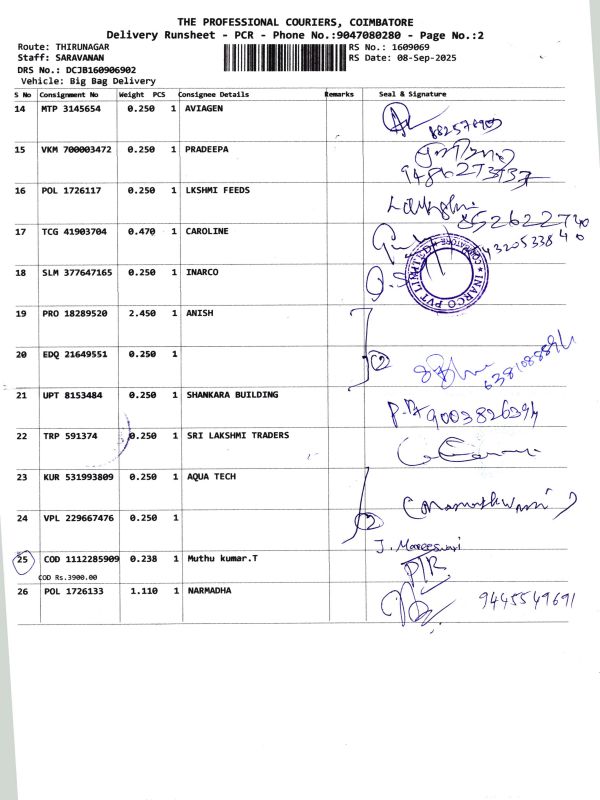 THE PROFESSIONAL COURIERS, COIMBATORE
Delivery Runsheet - PCR - Phone No.:9047080280 - Page No.:2
Route: THIRUNAGAR
Staff: SARAVANAN
DRS No.: DCJB160906902
Vehicle: Big Bag Delivery
RS No.: 1609069
RS Date: 08-Sep-2025
S No Consignment No Weight PCS Consignee Details Remarks Seal & Signature
14 MTP 3145654 0.250 1 AVIAGEN
15 VKM 700003472 0.250 1 PRADEEPA
16 POL 1726117 0.250 1 LKSHMI FEEDS
17 TCG 41903704 0.470 1 CAROLINE
18 SLM 377647165 0.250 1 INARCO
INARCO PVT LIMITED * COIMBATORE *
19 PRO 18289520 2.450 1 ANISH
20 EDQ 21649551 0.250 1
2
21 UPT 8153484 0.250 1 SHANKARA BUILDING
9003826394
22 TRP 591374 0.250 1 SRI LAKSHMI TRADERS
23 KUR 531993809 0.250 1 AQUA TECH
24 VPL 229667476 0.250 1
2
J. Mareeswari
25 COD 1112285909 0.238 1 Muthu kumar.T
COD Rs.3900.00
26 POL 1726133 1.110 1 NARMADHA 9445549691